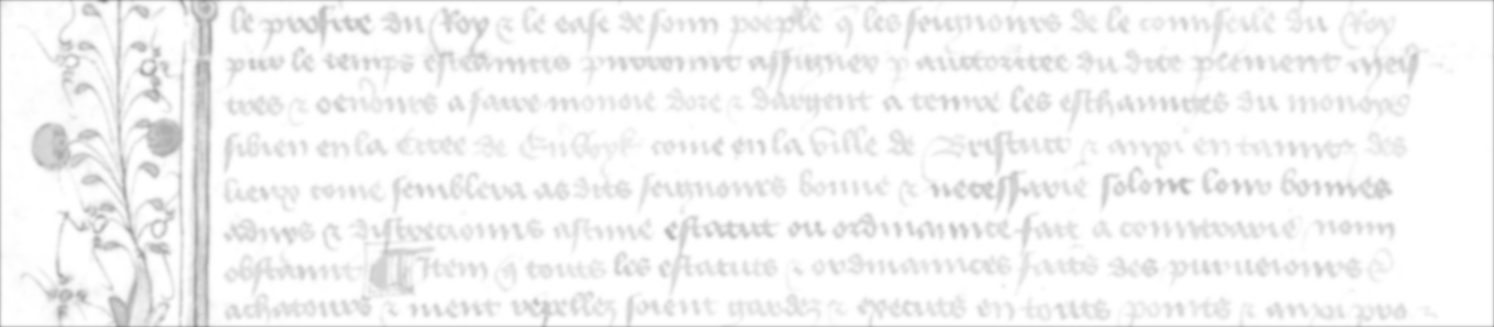 le profite du Roy & le ease de sonn poeple q les seignours de le counseile du Roy
pur le temps esteantis purront assigner p auctoritee du dite plement
tres & ordours a faire monoie dore & dargent a tenire les eschaunges du monoys
sibien en la come en la ville de & auxi en taunt des
lieux come semblera as dits seignours bonne & necessarie solont lour bonnes
& discrecionns ascune estatut ou ordinaunce fait a contrarie nonn
obstannt Item q touts les estatuts & ordinannces faits des purueiours &
achatours & ment repellez soient gardez & executs en touts pointz & auxi